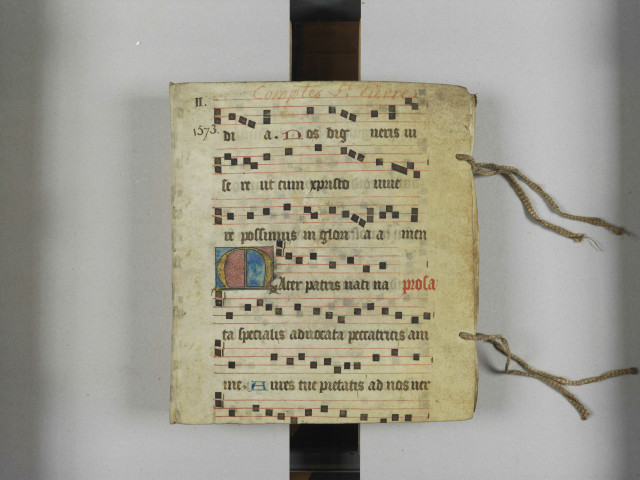 Comptes St. Pierre
II.
1573.
di a. Nos dig neris ui
se re ut cum xpristo uiue
re possimus in glori a a men
Mater patris nati na prosa
ta specialis aduocata peccatricis ani
me. Aures tue pietatis ad nos uer